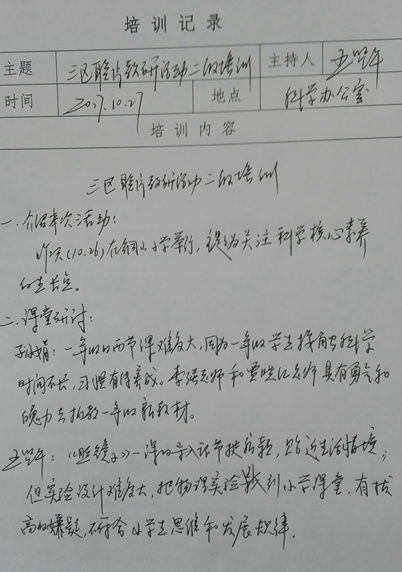 培训记录
主题 三区联片教研活动二级培训 主持人 王学军
时间 2017.10.27 地点 科学办公室
培训内容
三区联片教研活动二级培训
一、介绍本次活动:
昨天(10.26)在铜山小学举行,题为关注科学核心素养
的生长点。
二、课堂研讨:
孙娟:一年级的两节课难度大,因为一年级学生接触科学
时间不长,习惯有待养成。李强老师和贾晓红老师具有勇气和
魄力去执教一年级新教材。
:《照镜子》一课的导入环节挺新颖,贴近生活情境;
但实验设计难度大,把物理实验搬到小学课堂,有拔
高的嫌疑,不符合小学生思维和发展规律。